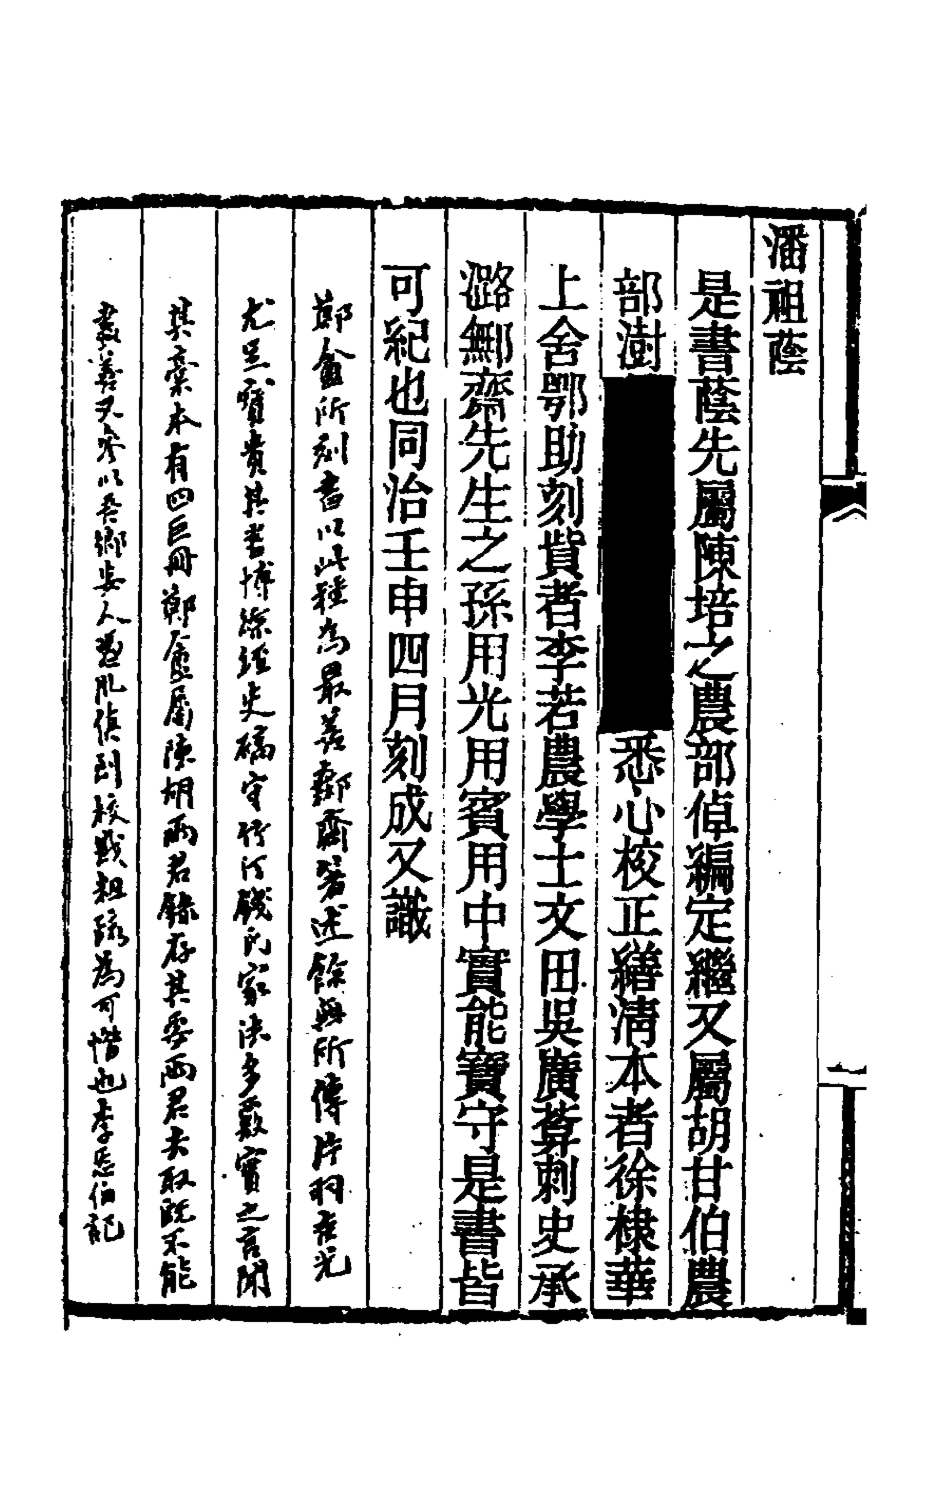 潘祖蔭
是書蔭先屬陳培之農部倬編定繼又屬胡甘伯農
部澍悉心校正繕清本者徐棣華
上舍鄂助刻貲者李若農學士文田吳廣葊刺史承
潞鄦齋先生之孫用光用賓用中實能寶守是書皆
可紀也同治壬申四月刻成又識
鄭盦所刻書以此種為最善鄦齋箸述餘無所傳片羽吉光
尤足寶貴其書博綜經史確守竹汀錢氏家法多覈實之言聞
其稾本有四巨冊鄭盦屬陳胡兩君錄存其要兩君去取既不能
盡善又參以吾鄉妄人趙 校譌粗疏為可惜也李悉伯記